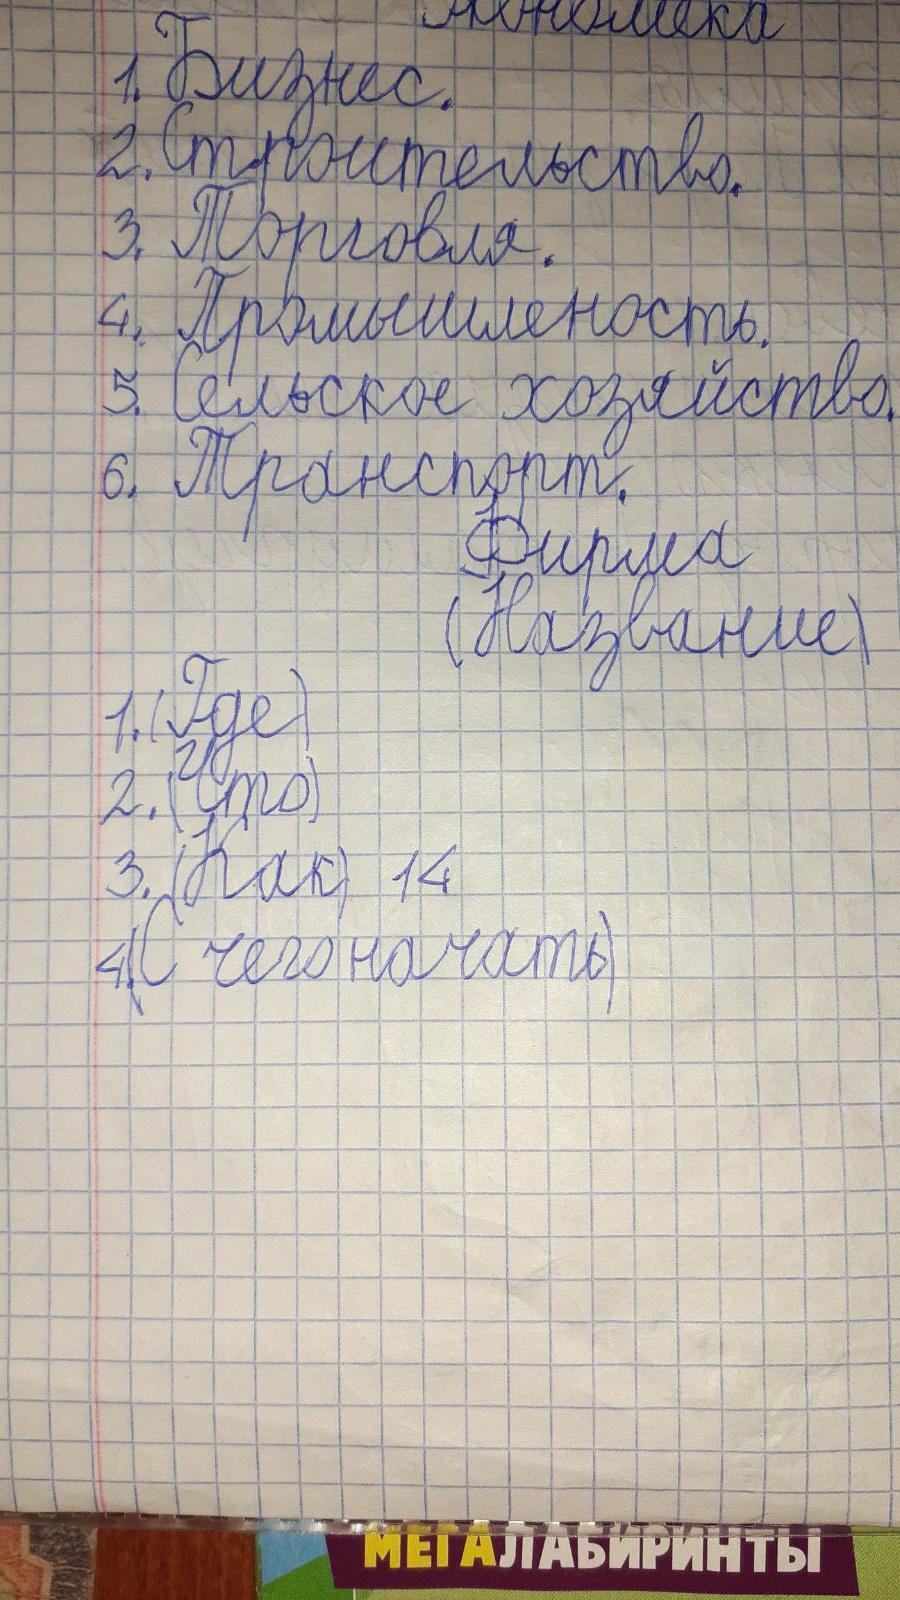 1. Бизнес.
2. Строительство.
3. Торговля.
4. Промышленость.
5. Сельское хозяйство.
6. Транспорт.
Фирма
(Название)
1. (Где)
2. (Что)
3. (Как) 14
4. (С чего начать)
МЕГАЛАБИРИНТЫ